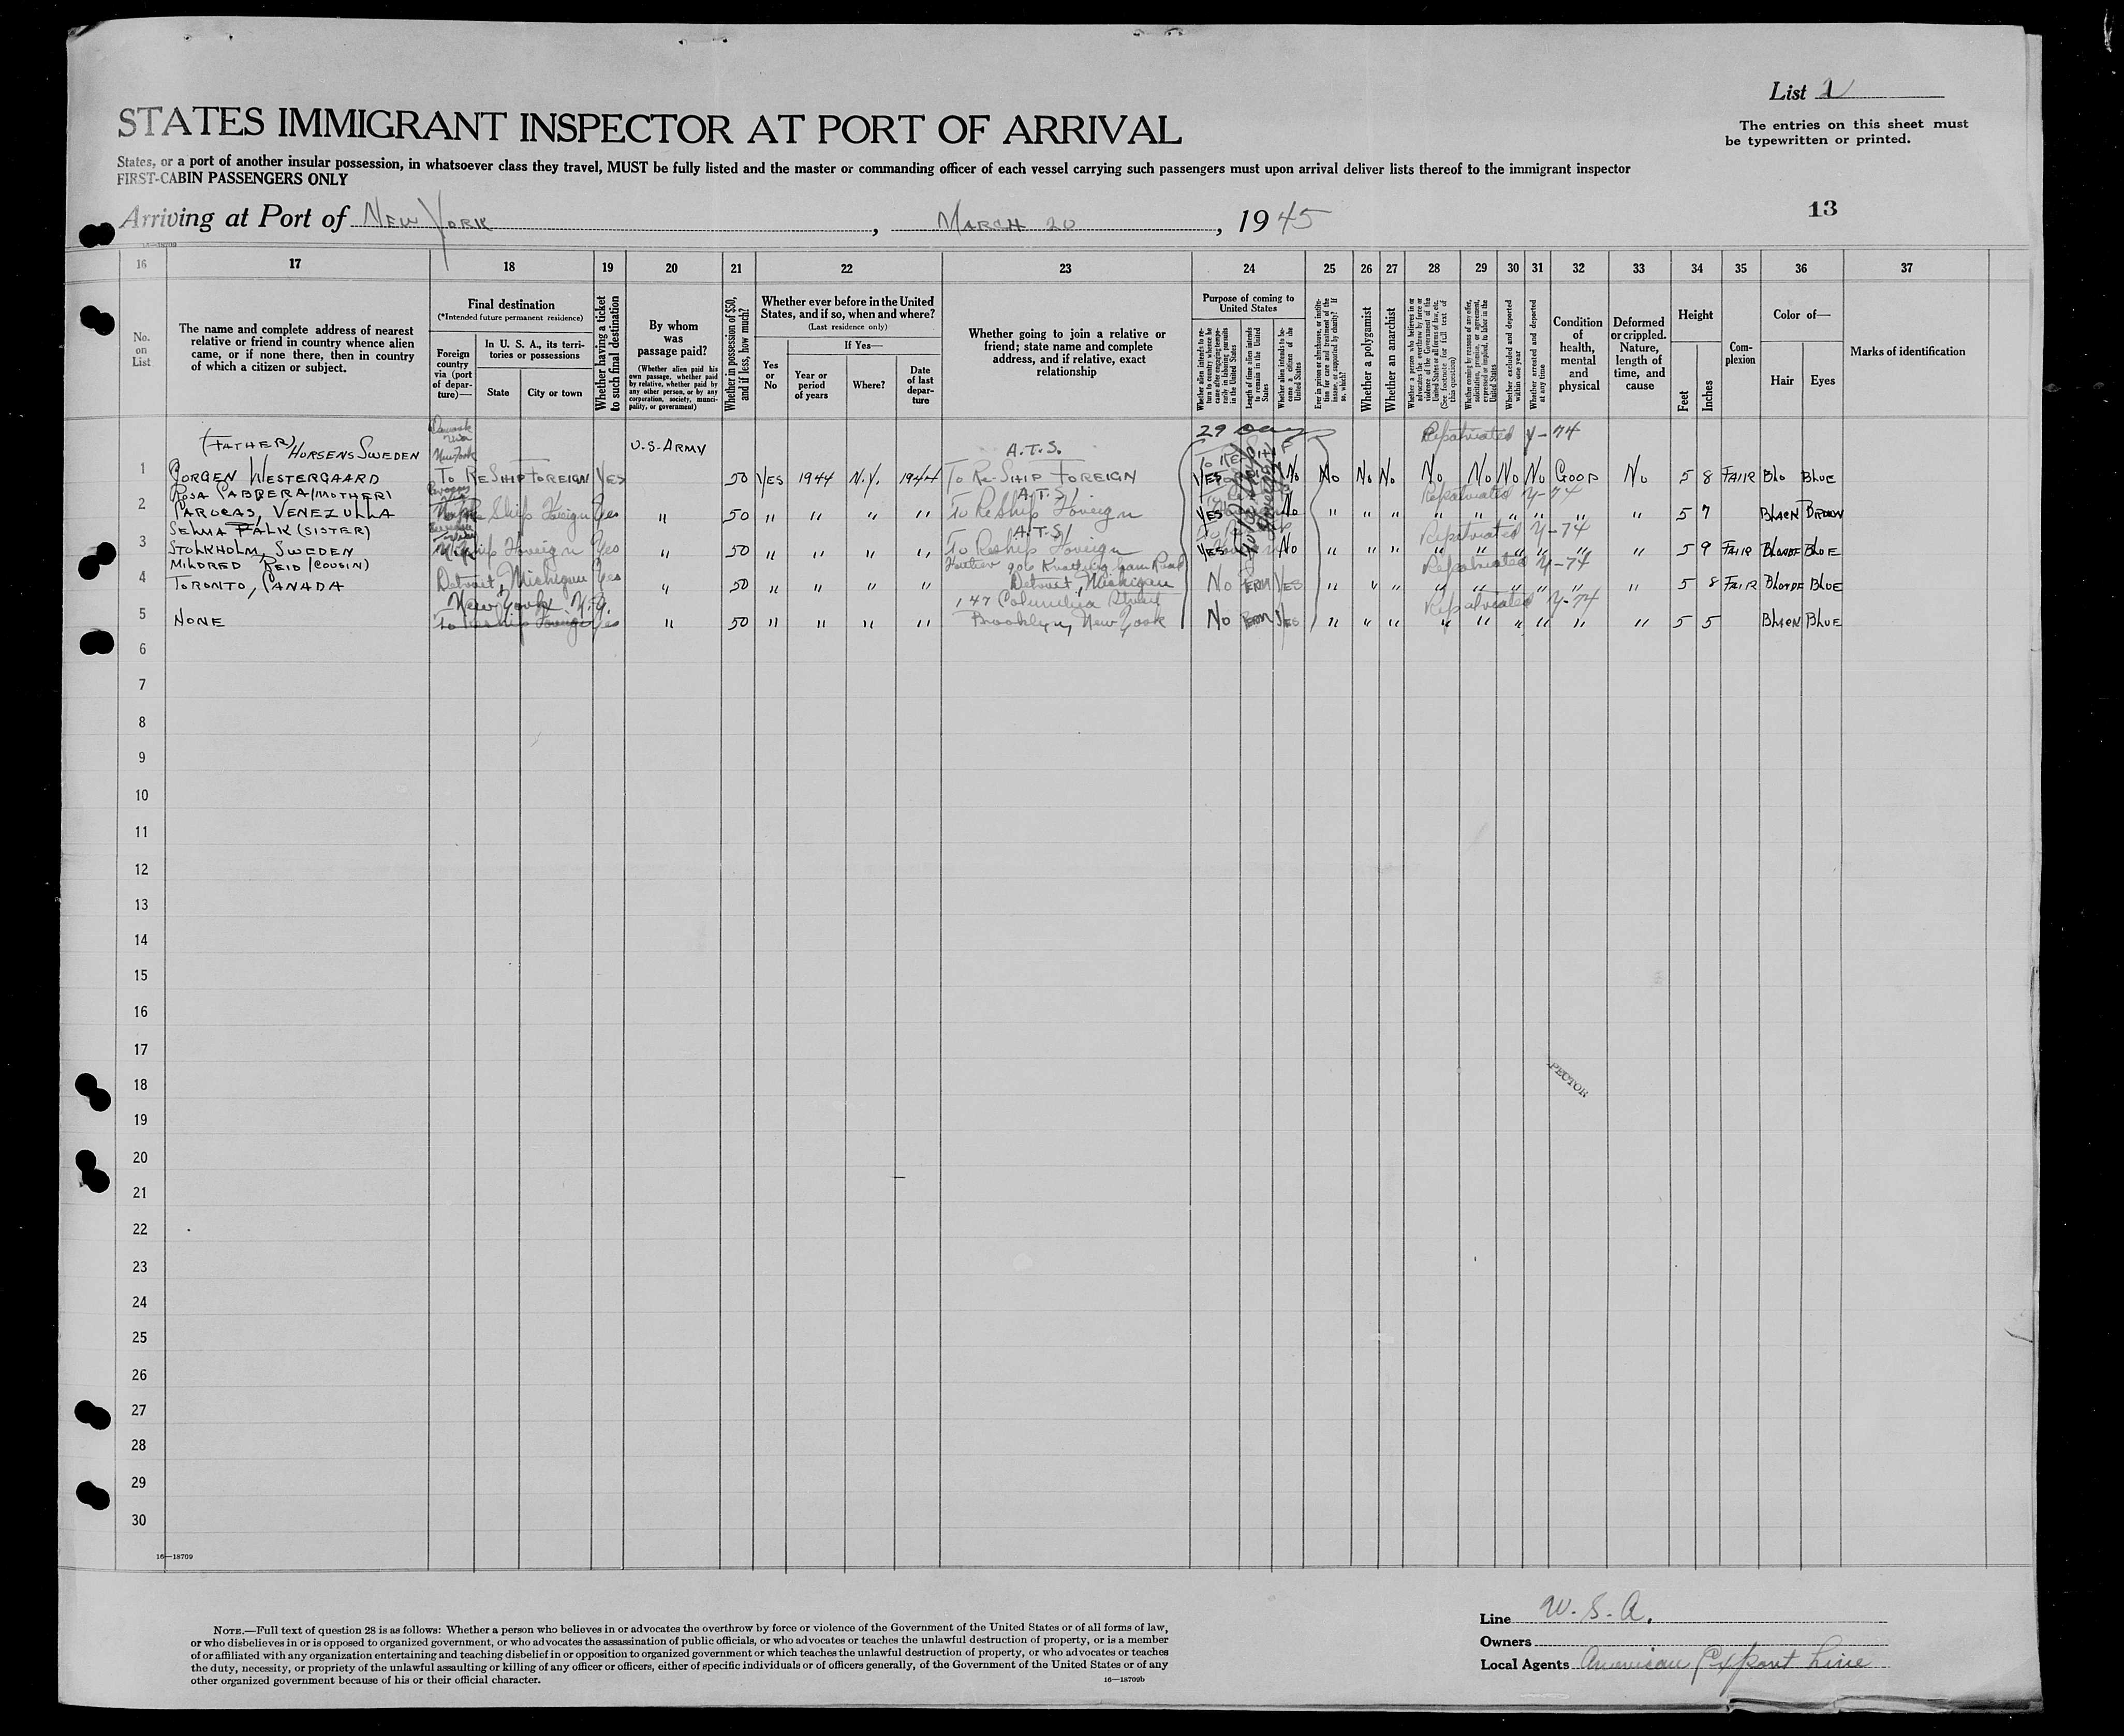 List 2
The entries on this sheet must
be typewritten or printed.
STATES IMMIGRANT INSPECTOR AT PORT OF ARRIVAL
States, or a port of another insular possession, in whatsoever class they travel, MUST be fully listed and the master or commanding officer of each vessel carrying such passengers must upon arrival deliver lists thereof to the immigrant inspector
FIRST-CABIN PASSENGERS ONLY
Arriving at Port of NEW YORK, MARCH 20, 1945
13
16—18709
16 17 18 19 20 21 22 23 24 25 26 27 28 29 30 31 32 33 34 35 36 37
No.
on
List
The name and complete address of nearest
relative or friend in country whence alien
came, or if none there, then in country
of which a citizen or subject.
Final destination
(*Intended future permanent residence)
Foreign
country
via (port
of depar-
ture)—
In U. S. A., its terri-
tories or possessions
State
City or town
Whether having a ticket
to such final destination
By whom
was
passage paid?
(Whether alien paid his
own passage, whether paid
by relative, whether paid by
any other person, or by any
corporation, society, munici-
pality, or government)
Whether in possession of $50,
and if less, how much?
Whether ever before in the United
States, and if so, when and where?
(Last residence only)
Yes
or
No
If Yes—
Year or
period
of years
Where?
Date
of last
depar-
ture
Whether going to join a relative or
friend; state name and complete
address, and if relative, exact
relationship
Purpose of coming to
United States
Whether alien intends to re-
turn to country whence he
came after engaging tempo-
rarily in laboring pursuits
in the United States
Length of time alien intends
to remain in the United
States
Whether alien intends to be-
come a citizen of the
United States
Ever in prison or almshouse, or institu-
tion for care and treatment of the
insane, or supported by charity? If
so, which?
Whether a polygamist
Whether an anarchist
Whether a person who believes in or
advocates the overthrow by force or
violence of the Government of the
United States or all forms of law, etc.
(See footnote for full text of
this question)
Whether coming by reason of any offer,
solicitation, promise, or agreement,
expressed or implied, to labor in the
United States
Whether excluded and deported
within one year
Whether arrested and deported
at any time
Condition
of
health,
mental
and
physical
Deformed
or crippled.
Nature,
length of
time, and
cause
Height
Feet
Inches
Com-
plexion
Color of—
Hair
Eyes
Marks of identification
29 Days
(FATHER) HORSENS SWEDEN U.S. ARMY A.T.S. Repatriated Y-74
1 JORGEN WESTERGAARD TO RESHIP FOREIGN YES 50 YES 1944 N.Y. 1944 TO RE-SHIP FOREIGN YES NO NO NO NO NO NO NO NO GOOD NO 5 8 FAIR BLO BLUE
ROSA CABRERA (MOTHER) A.T.S. Repatriated Y-74
2 CAROCAS, VENEZULLA Re Ship Foreign Yes " 50 " " " " To Reship Foreign YES NO " " " " " " " " " 5 7 BLACK BROWN
SELMA FALK (SISTER) A.T.S. Repatriated Y-74
3 STOLKHOLM, SWEDEN Reship Foreign Yes " 50 " " " " To Reship Foreign YES NO " " " " " " " " " 5 9 FAIR BLONDE BLUE
MILDRED REID (COUSIN) Repatriated Y-74
4 TORONTO, CANADA Detroit, Michigan Yes " 50 " " " " Detroit, Michigan NO PERM YES " " " " " " " " " 5 8 FAIR BLONDE BLUE
New York N.Y. 147 Columbia Street Repatriated Y-74
5 NONE To Reship Foreign Yes " 50 " " " " Brooklyn, New York NO PERM YES " " " " " " " " " 5 5 BLACK BLUE
6
7
8
9
10
11
12
13
14
15
16
17
18
PECTOR
19
20
21
22
23
24
25
26
27
28
29
30
16—18709
NOTE.—Full text of question 28 is as follows: Whether a person who believes in or advocates the overthrow by force or violence of the Government of the United States or of all forms of law,
or who disbelieves in or is opposed to organized government, or who advocates the assassination of public officials, or who advocates or teaches the unlawful destruction of property, or is a member
of or affiliated with any organization entertaining and teaching disbelief in or opposition to organized government or which teaches the unlawful destruction of property, or who advocates or teaches
the duty, necessity, or propriety of the unlawful assaulting or killing of any officer or officers, either of specific individuals or of officers generally, of the Government of the United States or of any
other organized government because of his or their official character.
16—18709b
Line W. S. A.
Owners
Local Agents American Export Line